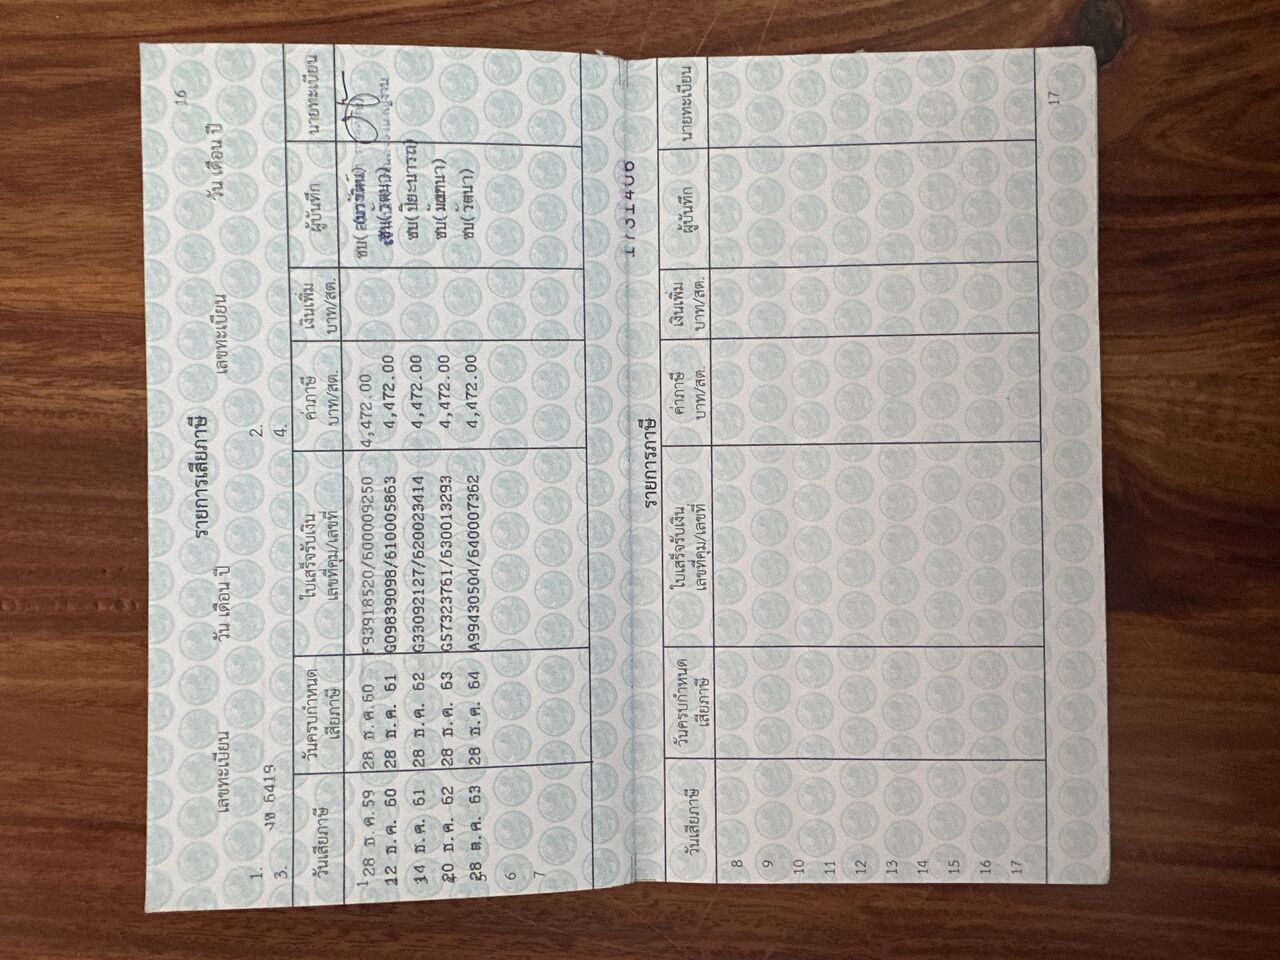 16
รายการเสียภาษี
เลขทะเบียน วัน เดือน ปี เลขทะเบียน วัน เดือน ปี
1. 2.
3. งข 6419 4.
วันเสียภาษี วันครบกำหนดเสียภาษี ใบเสร็จรับเงิน เลขที่คุม/เลขที่ ค่าภาษี บาท/สต. เงินเพิ่ม บาท/สต. ผู้บันทึก นายทะเบียน
1 28 ธ.ค.59 28 ธ.ค.60 F93918520/600009250 4,472.00 ชบ(
12 ธ.ค. 60 28 ธ.ค. 61 G09839098/610005863 4,472.00
14 ธ.ค. 61 28 ธ.ค. 62 G33092127/620023414 4,472.00 ชบ(ปิยะนารถ)
20 ธ.ค. 62 28 ธ.ค. 63 G57323761/630013293 4,472.00 ชบ(
28 ต.ค. 63 28 ธ.ค. 64 A99430504/640007362 4,472.00 ชบ(วัฒนา)
6
7
1731406
รายการภาษี
วันเสียภาษี วันครบกำหนด เสียภาษี ใบเสร็จรับเงิน เลขที่คุม/เลขที่ ค่าภาษี บาท/สต. เงินเพิ่ม บาท/สต. ผู้บันทึก นายทะเบียน
8
9
10
11
12
13
14
15
16
17
17